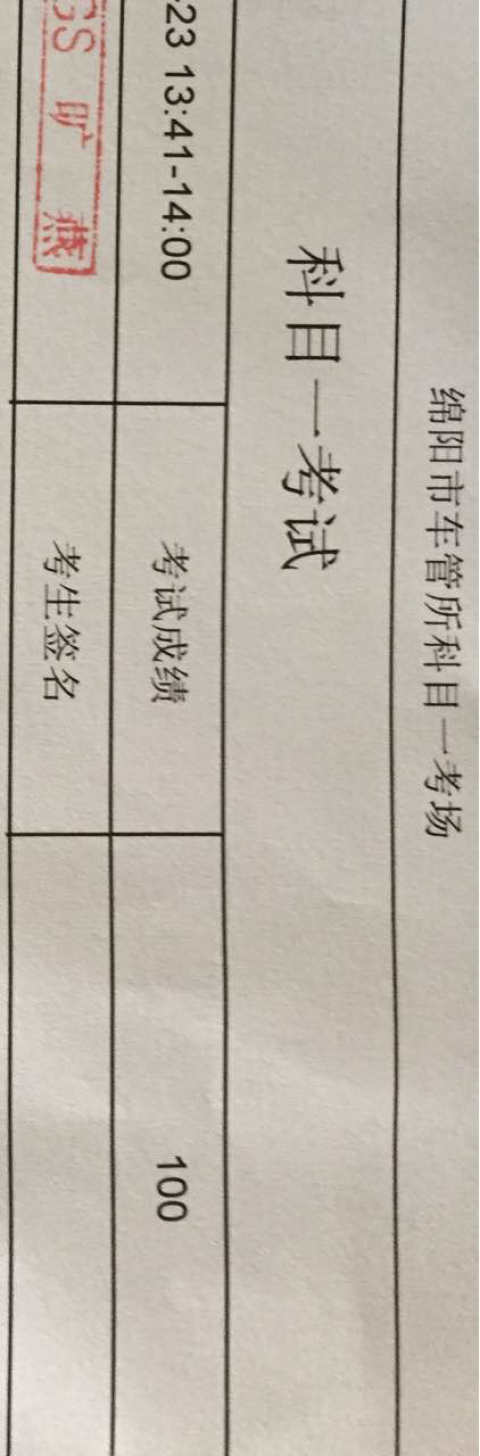 绵阳市车管所科目一考场
科目一考试
23 13:41-14:00 考试成绩 100
GS 旷 燕 考生签名